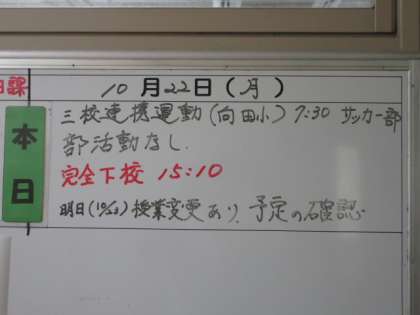 日課
10月22日(月)
本日
三校連携運動(向田小) 7:30 サッカー部
部活動なし.
完全下校 15:10
明日(10/23)授業変更あり. 予定の確認